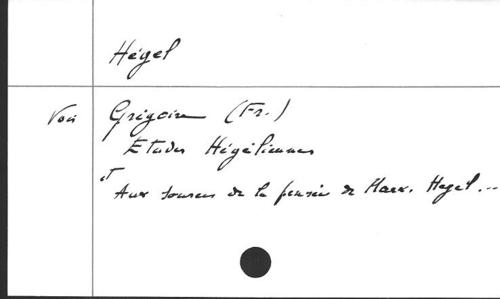 Hégel
Voir Grégoire (Fr.)
Etudes Hégéliennes
et Aux sources de la pensée de Marx, Hegel...